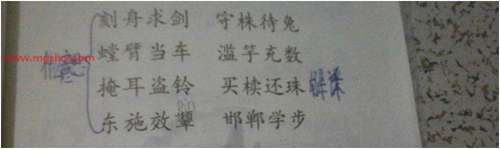 刻舟求剑 守株待兔
螳臂当车 滥竽充数
www.mgshz.com
掩耳盗铃 买椟还珠
东施效颦 邯郸学步